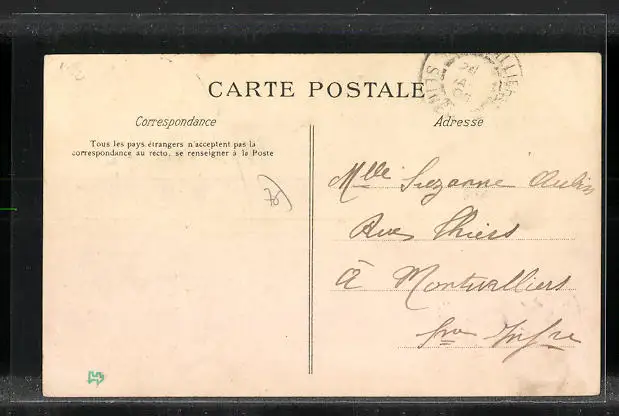 CARTE POSTALE
Correspondance
Adresse
Tous les pays étrangers n'acceptent pas la
correspondance au recto, se renseigner à la Poste
Mlle Suzanne Aubin
Rue Thiers
à Montivilliers
Sne Infre